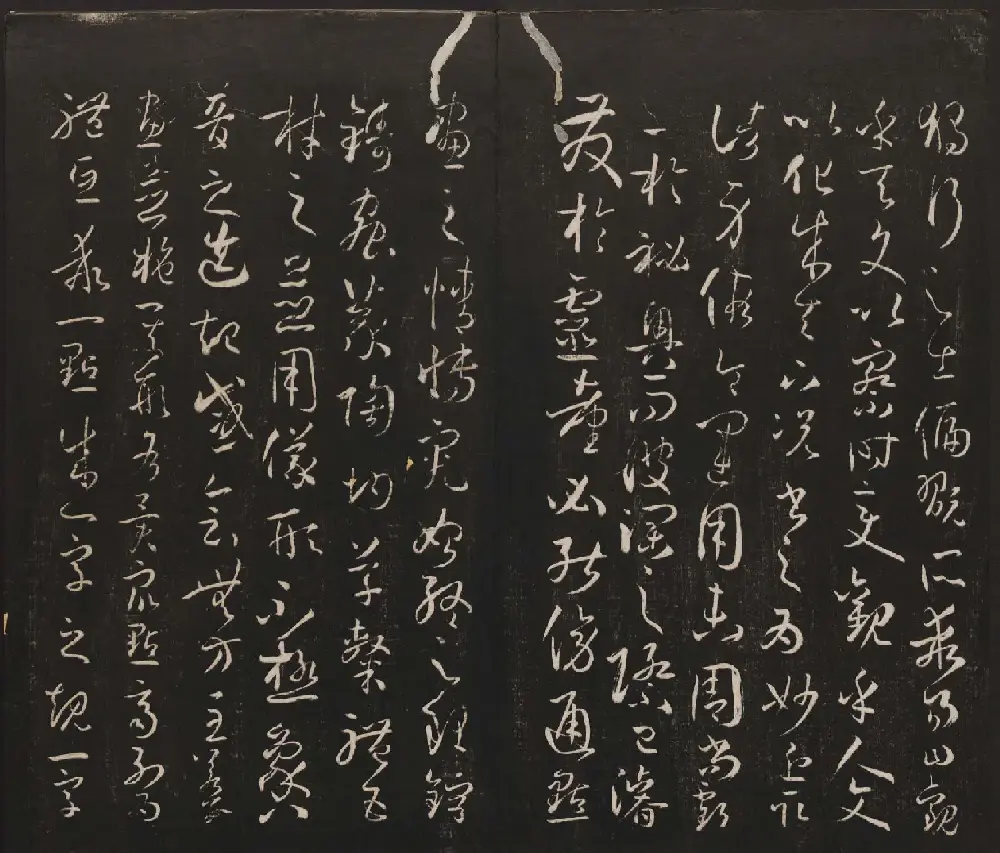 獨行之士偏翫所乖易曰觀
乎天文以察時變觀乎人文
以化成天下況書之為妙近取
諸身假令運用未周尚虧
工於祕奧而波瀾之際已濬
發於靈臺必能傍通點
畫之情博究始終之理鎔
鑄蟲篆陶均草隸體五
材之並用儀形不極象八
音之迭起感會無方至若數
畫並施其形各異眾點齊列為
體互乖一點成一字之規一字